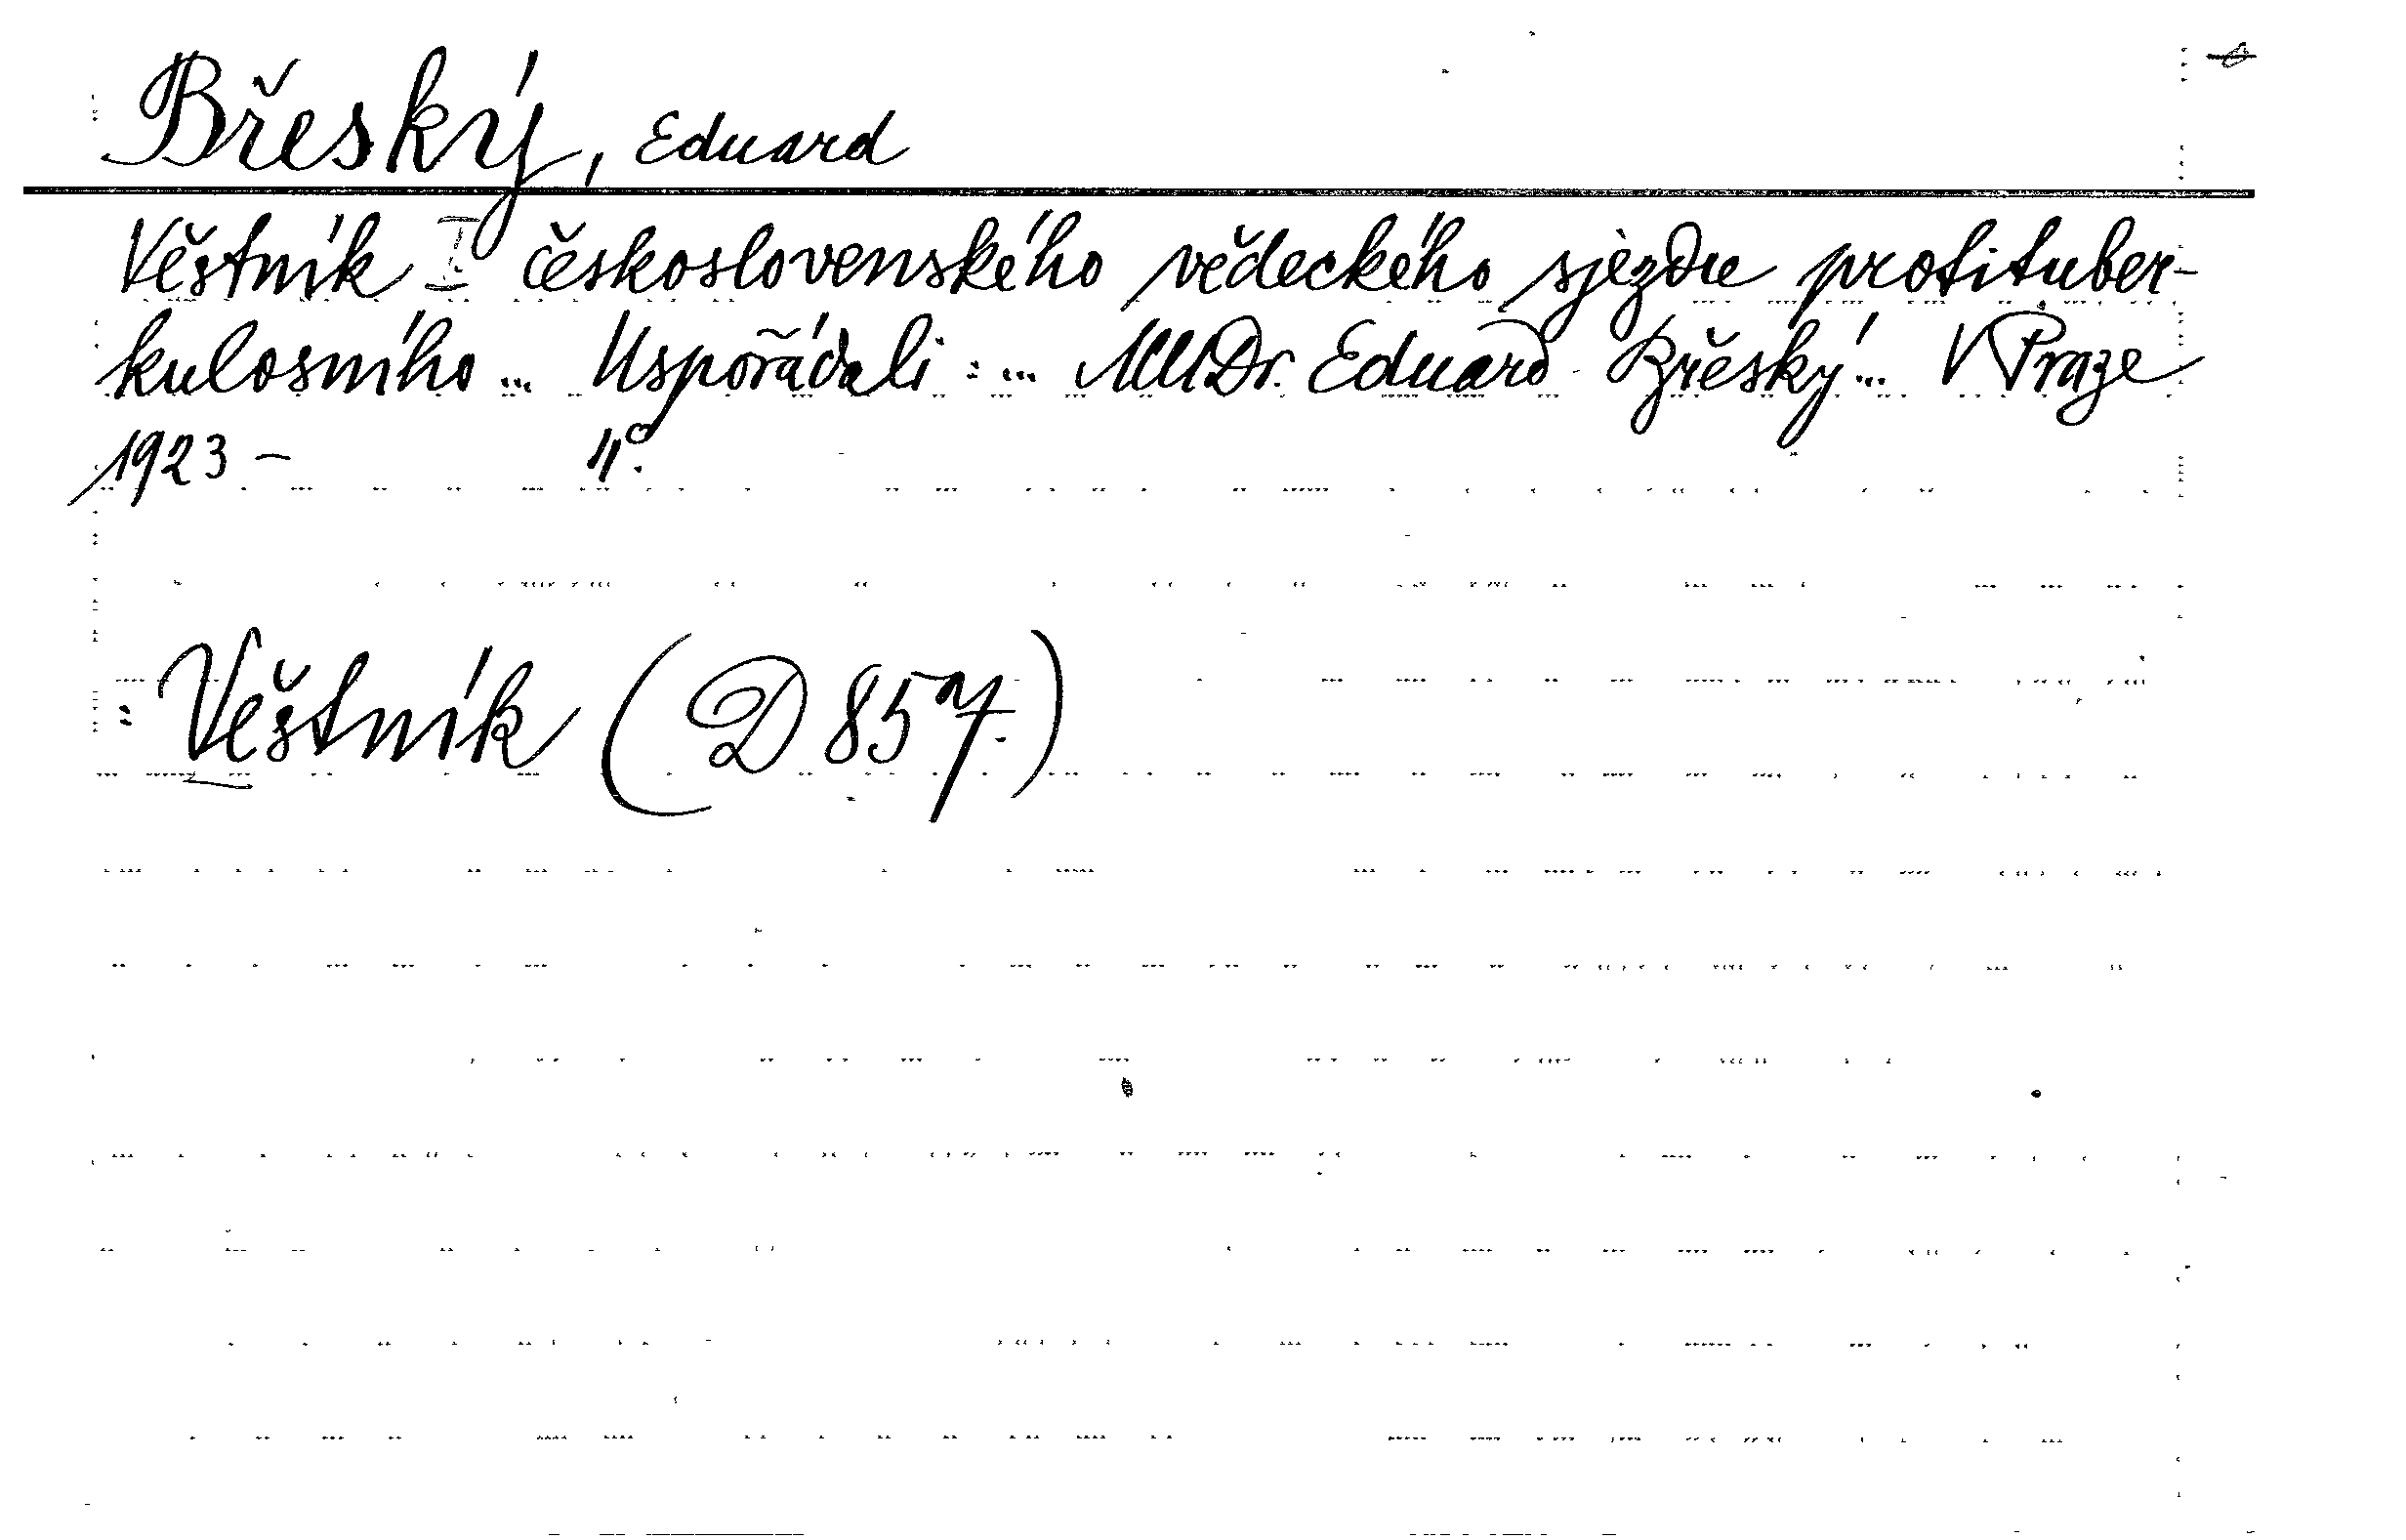 Břeský, Eduard
Věstník I československého vědeckého sjezdu protituber-
kulosního ... Uspořádali: ... MUDr. Eduard Břeský ... V Praze
1923 – 4°.
: Věstník (D 857.)